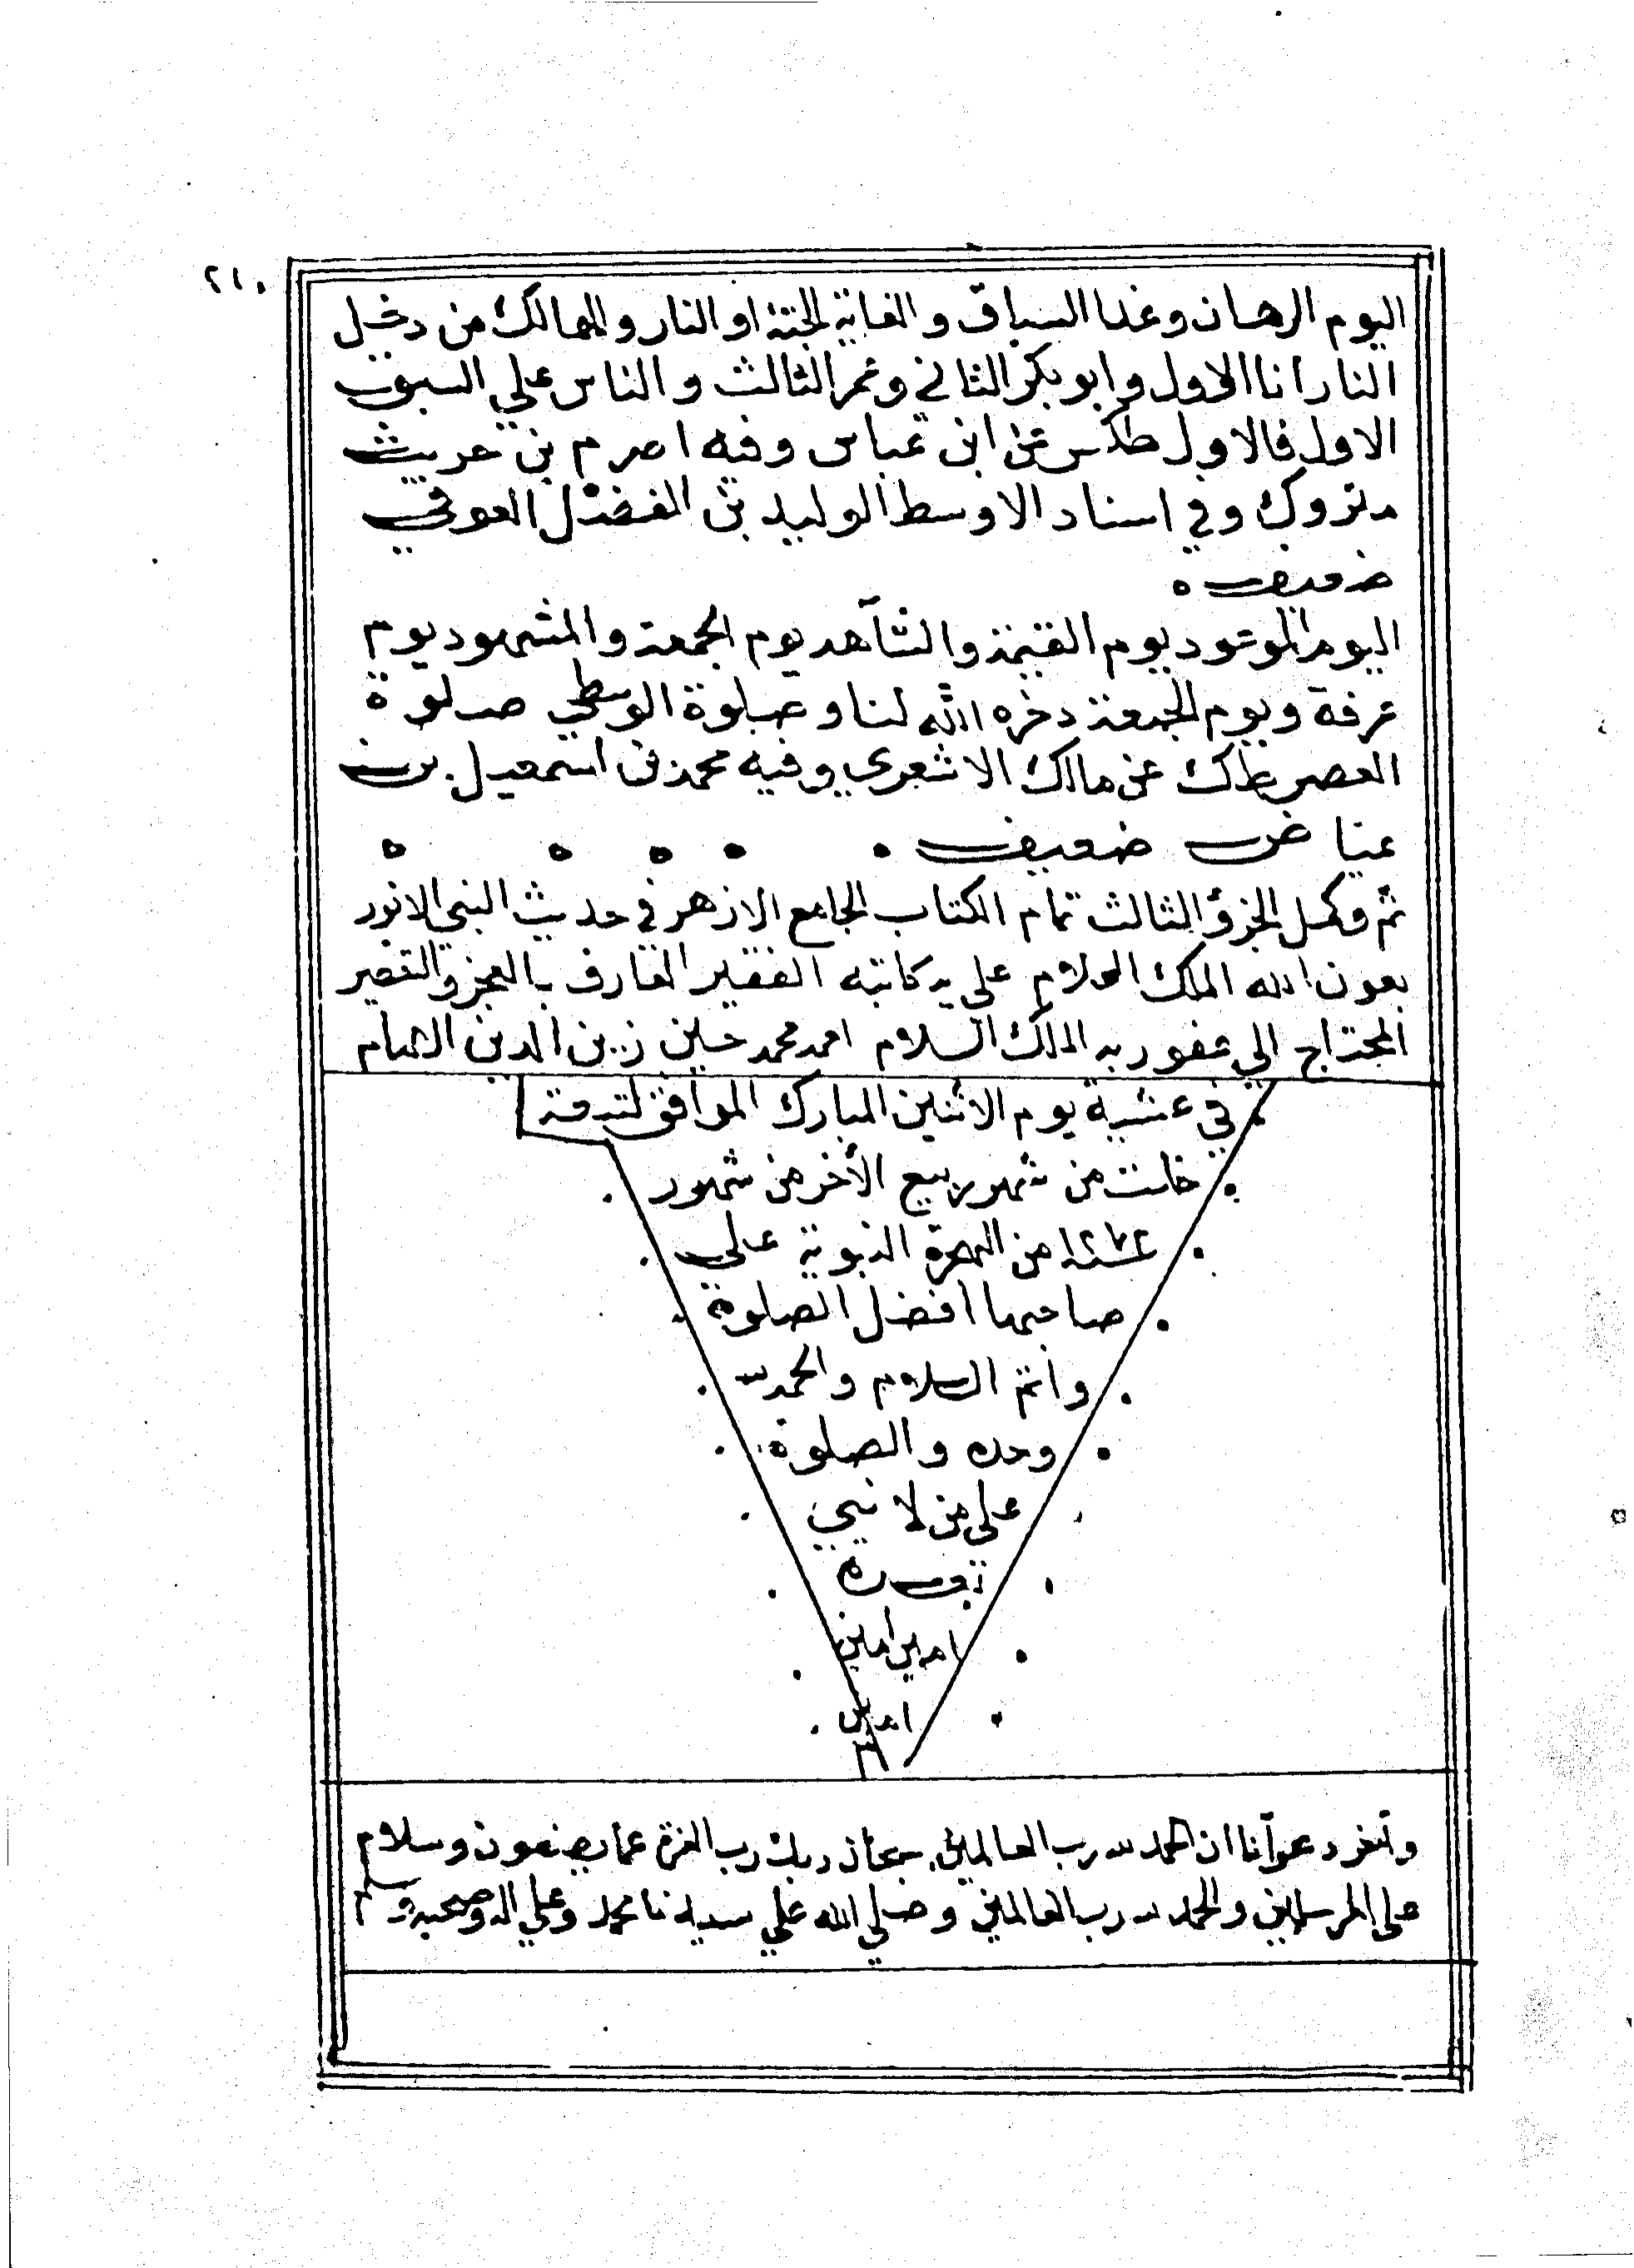 ٢١٠
اليوم الرهان وغدا السباق والغاية الجنة او النار والهالك من دخل
النار انا الاول وابو بكر الثاني وعمر الثالث والناس علي السبق
الاول فالاول طكس عن ابن عباس وفيه اصرم بن حريث
متروك وفي اسناد الاوسط الوليد بن الفضل العوفي
ضعيف ه
اليوم الموعود يوم القيمة والشاهد يوم الجمعة والمشهود يوم
عرفة ويوم الجمعة دخره الله لنا وصلوة الوسطي صلوة
العصر طك عن مالك الاشعري وفيه محمد بن اسمعيل بن
عياض ضعيف
تم وكمل الجزؤ الثالث تمام الكتاب الجامع الازهر في حديث النبي الانور
بعون الله الملك العلام علي يد كاتبه الفقير العارف بالعجز والتقصير
المحتاج الي عفو ربه الملك السلام احمد محمد حسين زين الدين
في عشية يوم الاثنين المبارك الموافق لتسعة
خلت من شهر ربيع الأخر من شهور
١٢٧٢ من الهجرة النبوية علي
صاحبها افضل الصلوة
واتم السلام والحمد لله
وحده والصلوة
علي من لا نبي
بعده
امين امين
امين
م
واخر دعوآنا ان الحمد لله رب العالمين سبحان ربك رب العزة عما يصفون وسلام
علي المرسلين والحمد لله رب العالمين وصلي الله علي سيدنا محمد وعلي اله وصحبه وسلم